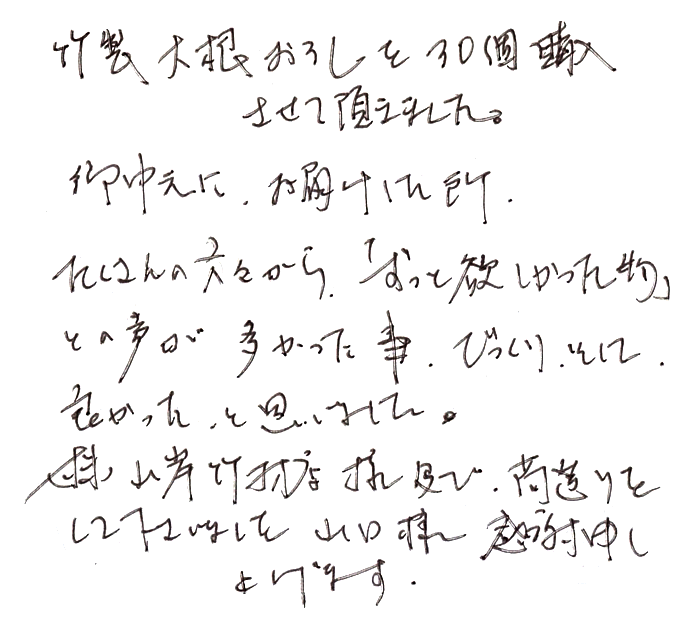 竹製大根おろしを30個購入
させて頂きました。
御中元に、お届けした所、
たくさんの方々から、「ずっと欲しかった物」
との声が多かった事、びっくり、そして、
良かった、と思いました。
㈱山岸竹材店様及び、荷造りを
して下さいました山口様 感謝申し
上げます。